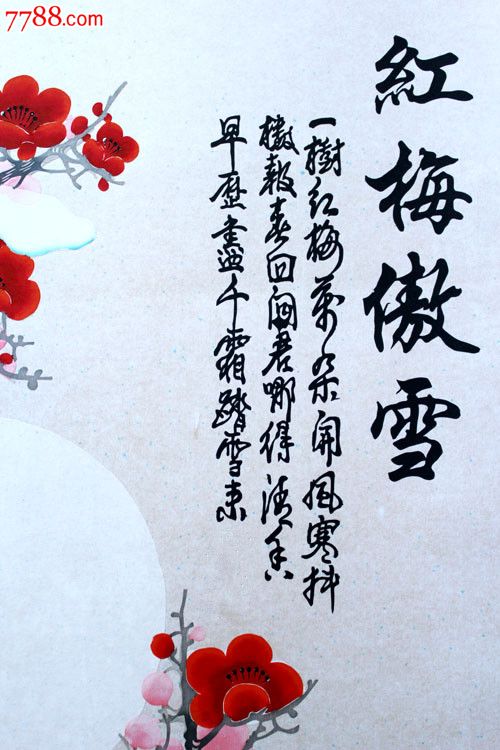 7788.com
紅梅傲雪
一樹红梅萬朵開風寒抖
擻報春回問君哪得清香
早歷盡千霜踏雪来